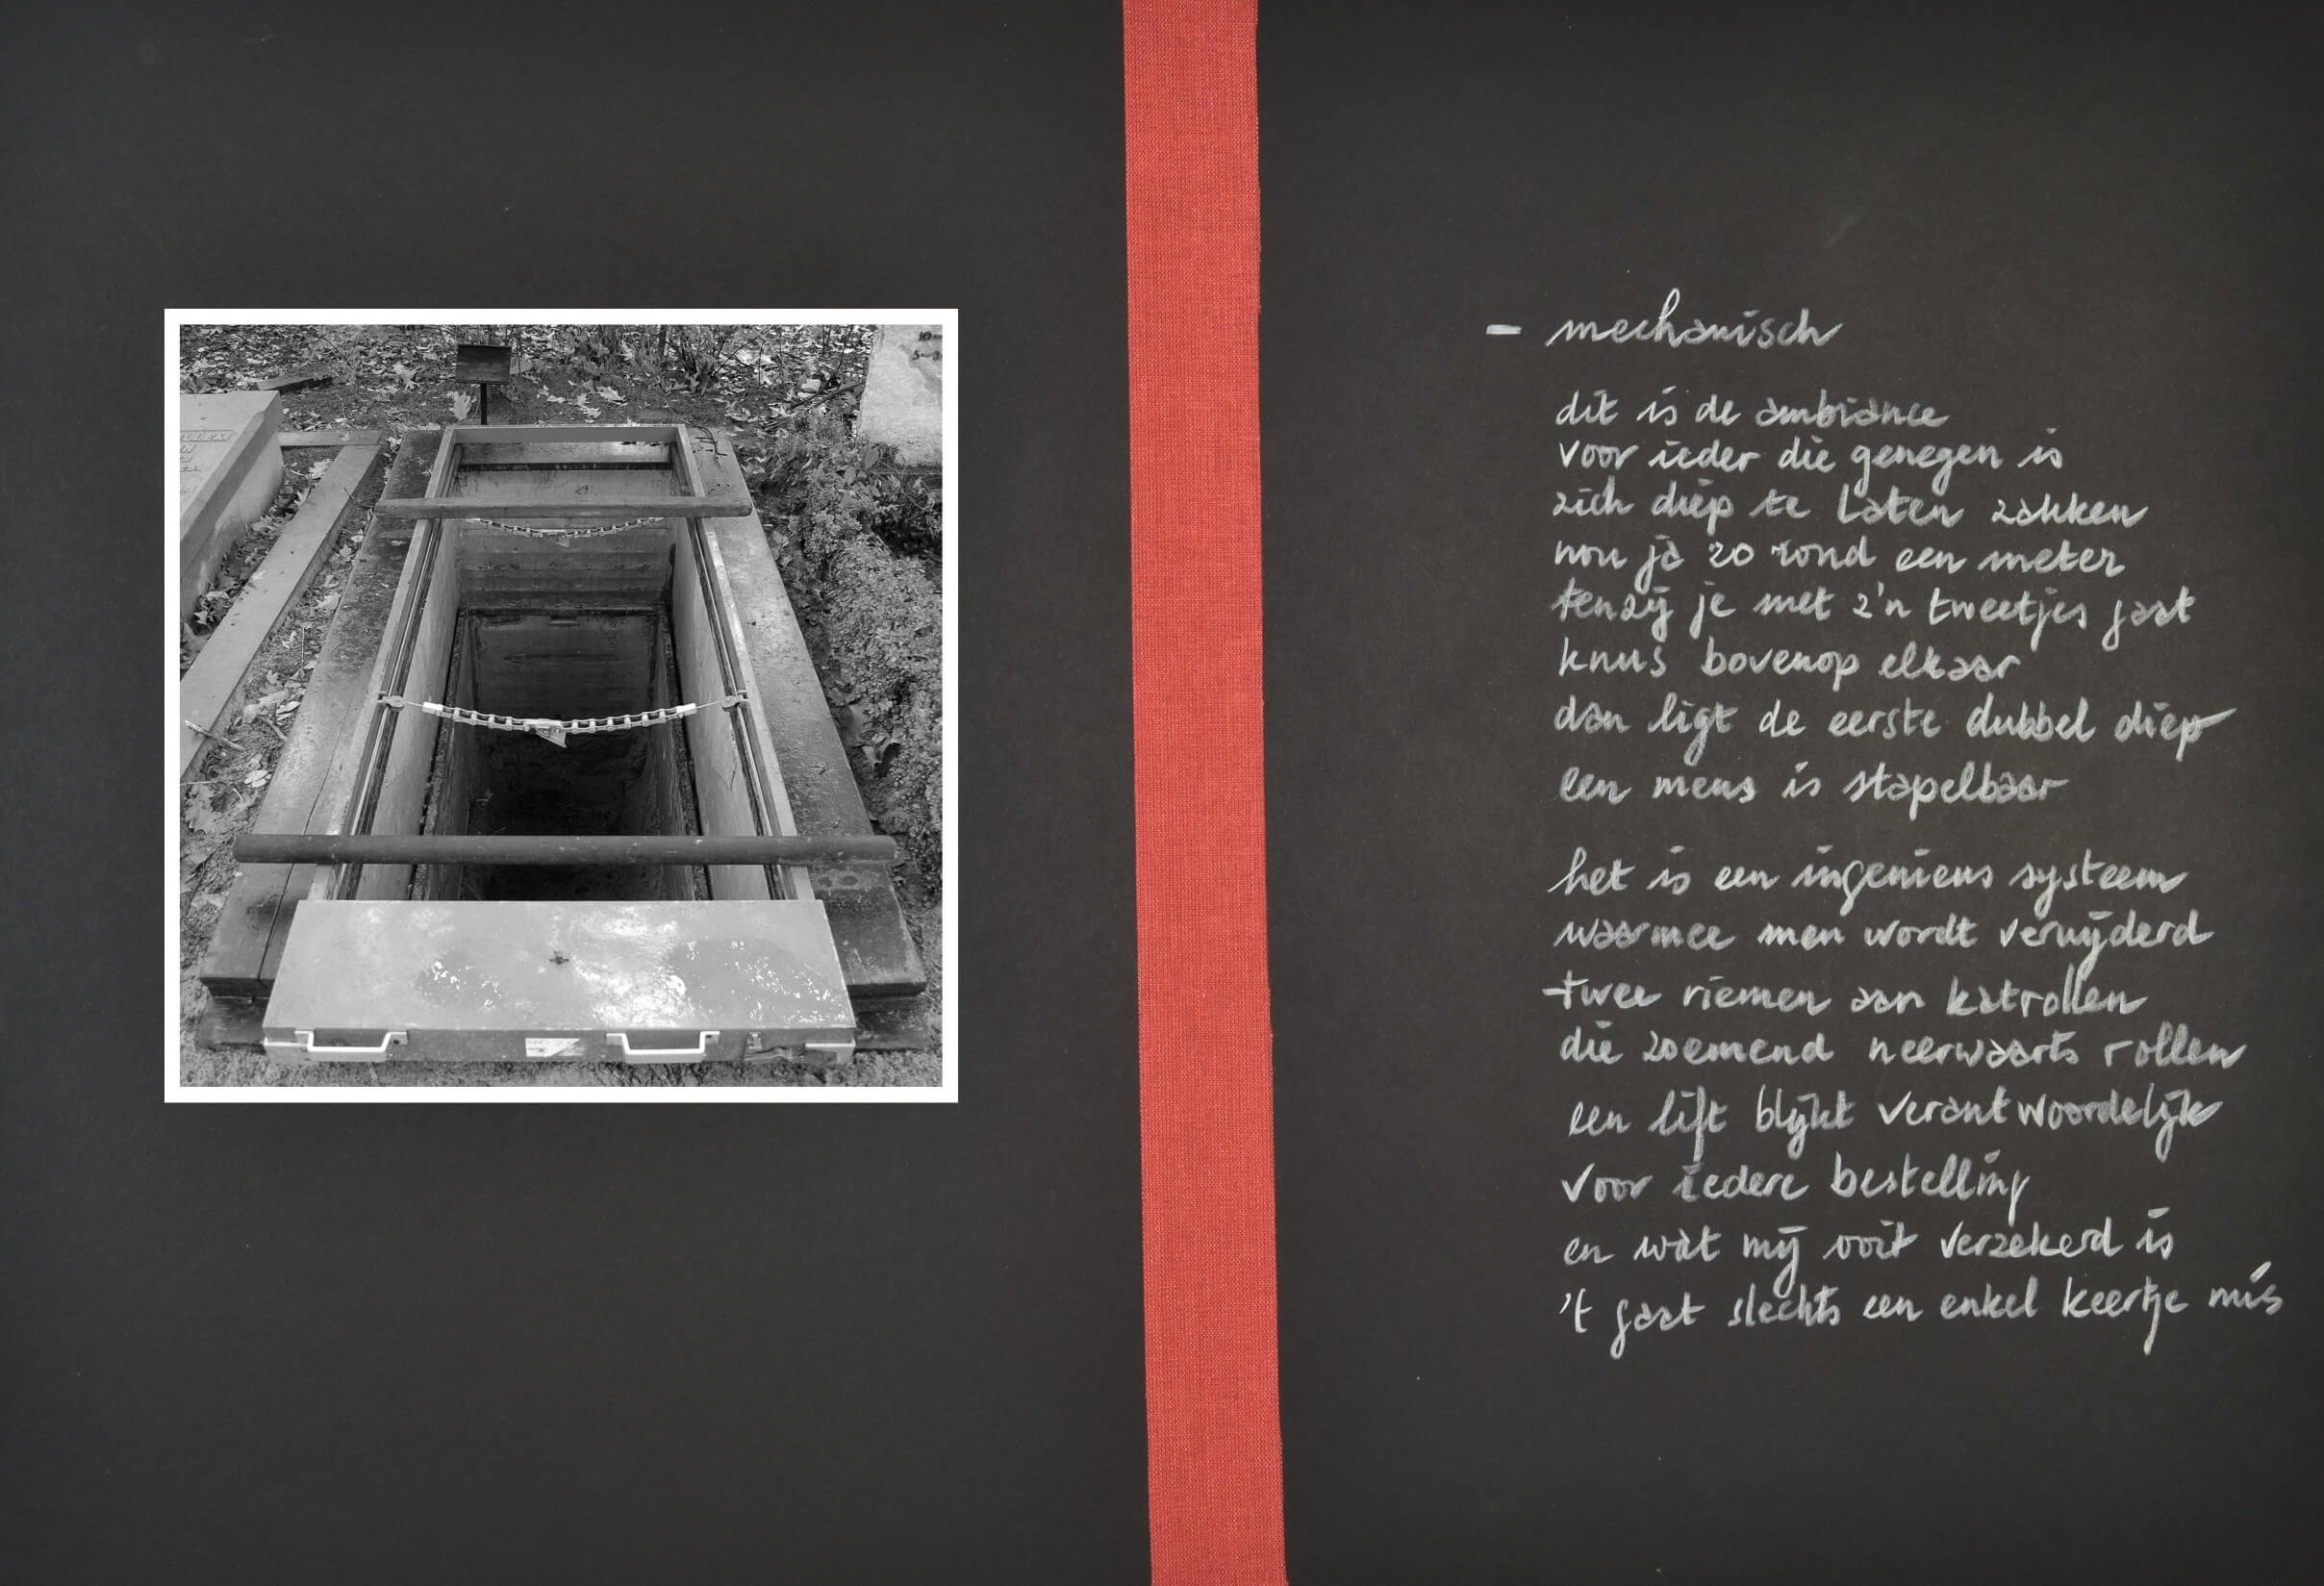 LLEM
- mechanisch
dit is de ambiance
voor ieder die genegen is
zich diep te laten zakken
nou ja zo rond een meter
tenzij je met z'n tweetjes gaat
knus bovenop elkaar
dan ligt de eerste dubbel diep
een mens is stapelbaar
het is een ingenieus systeem
waarmee men wordt verwijderd
twee riemen aan katrollen
die zoemend neerwaarts rollen
een lift blijkt verantwoordelijk
voor iedere bestelling
en wat mij ooit verzekerd is
't gaat slechts een enkel keertje mis